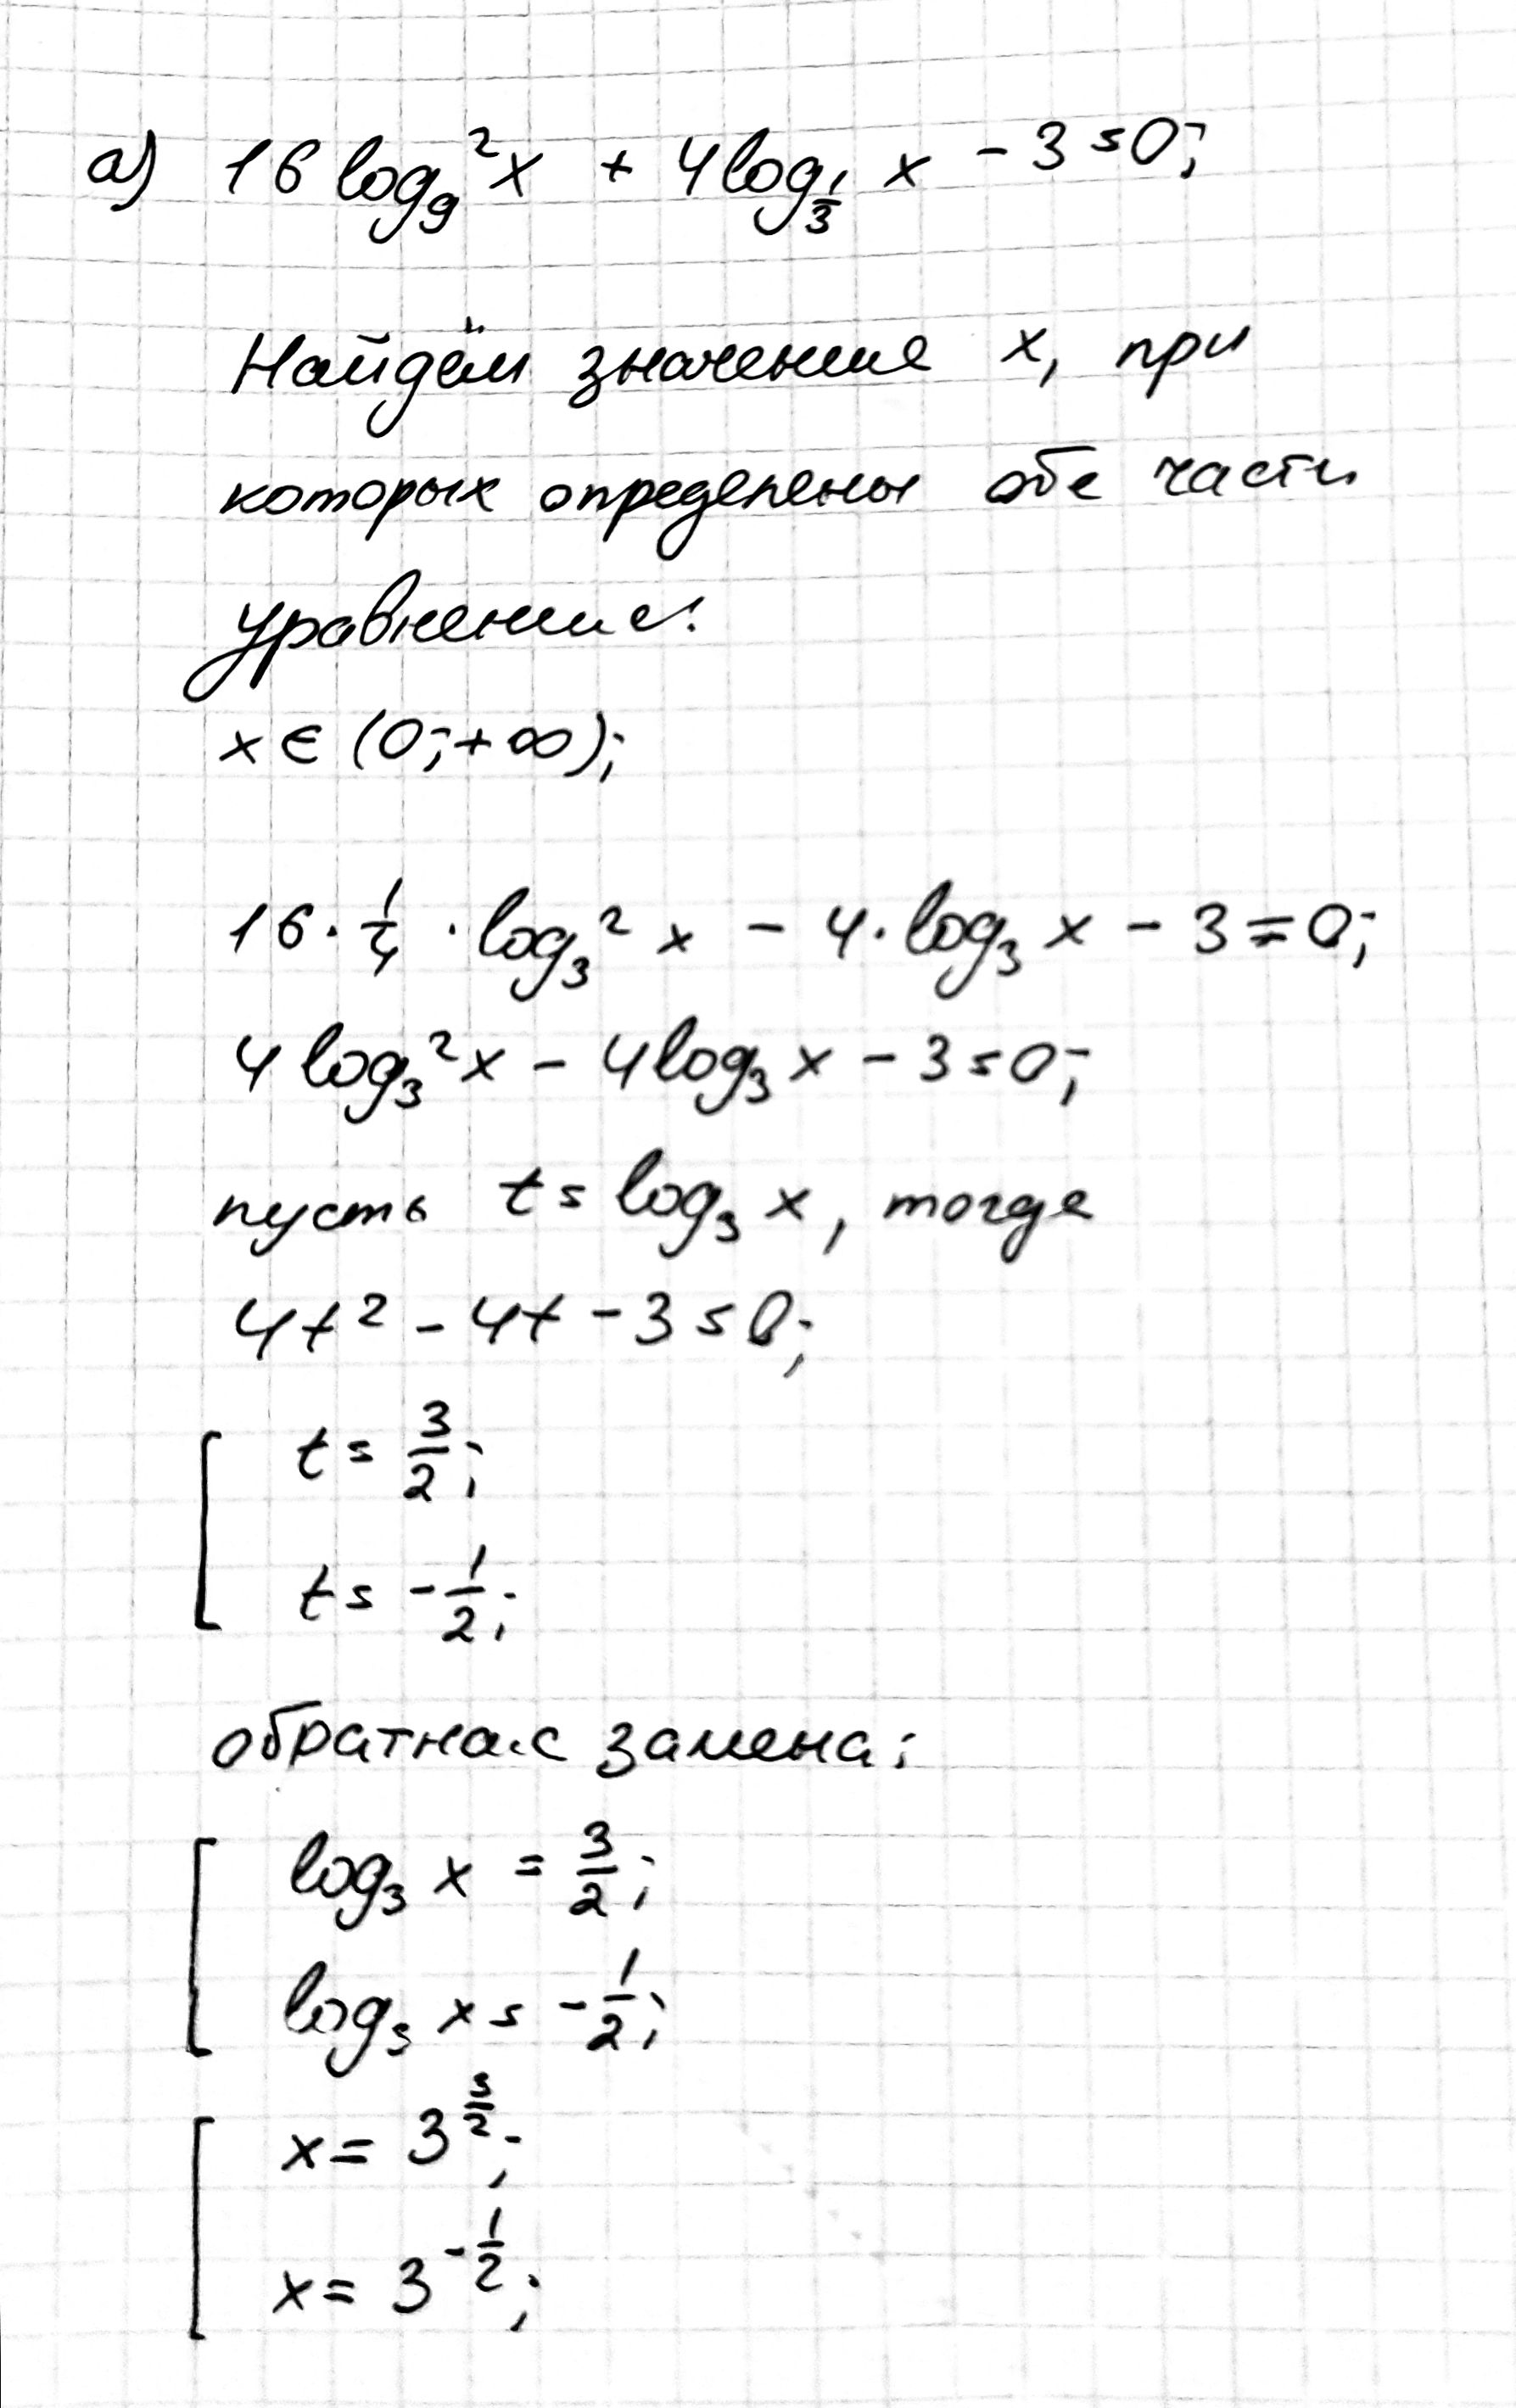 а) 16 log₉² x + 4 log_{1/3} x - 3 = 0;
Найдём значения x, при
которых определены обе части
уравнения:
x ∈ (0; +∞);
16 · 1/4 · log₃² x - 4 · log₃ x - 3 = 0;
4 log₃² x - 4 log₃ x - 3 = 0;
пусть t = log₃ x, тогда
4t² - 4t - 3 = 0;
[ t = 3/2;
t = -1/2;
обратная замена:
[ log₃ x = 3/2;
log₃ x = -1/2;
[ x = 3^{3/2};
x = 3^{-1/2};